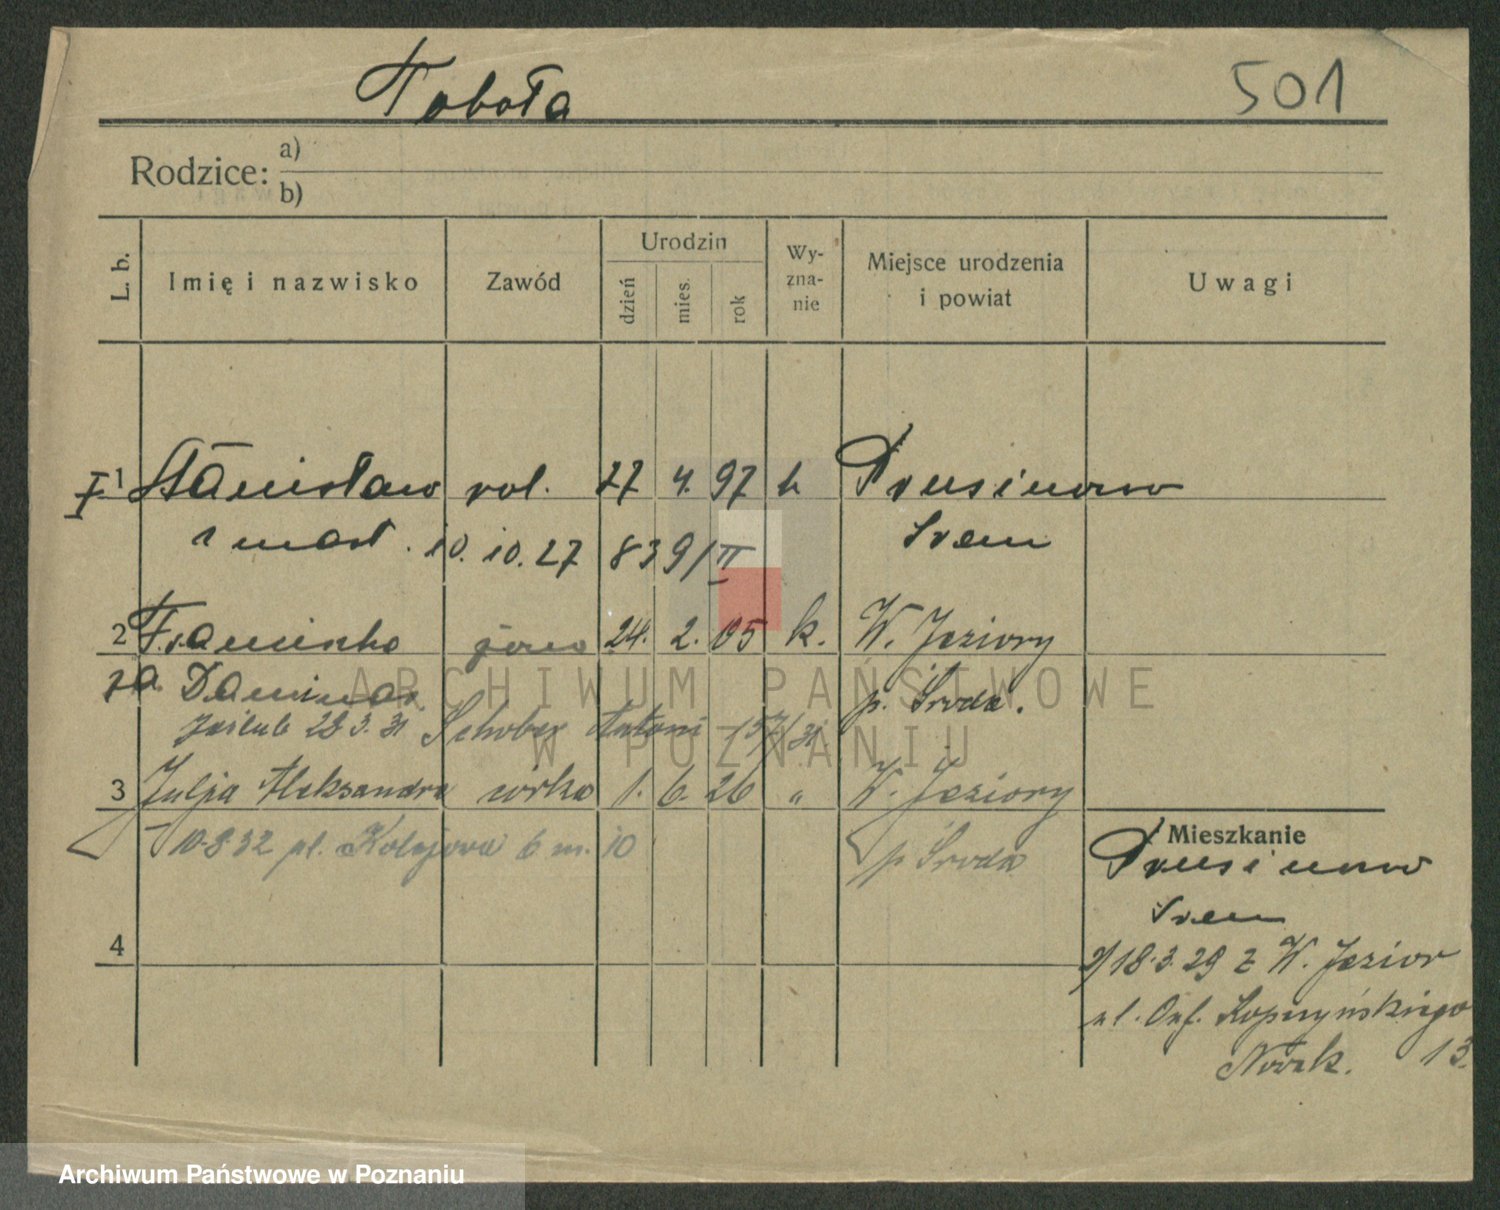 Toboła
501
Rodzice: a)
b)
L. b.
Imię i nazwisko
Zawód
Urodzin
dzień
mies.
rok
Wy-
zna-
nie
Miejsce urodzenia
i powiat
Uwagi
I. 1 Stanisław rol. 27 4. 97 k Prusinowo
zmarł. 10. 10. 27 839/II Śrem
2 Franciszka żona 24. 2. 05 k. W. Jeziory
p. Środa.
zaślub 28 3. 31 Schober Antoni 157/31
3 Julja Aleksandra córka 1. 6. 26 " W. Jeziory
10.8.32 pl. Kolejowa 6 m. 10 p Środa
Mieszkanie
Prusinowo
Śrem
2/18.3.29 z W. Jezior
ul. Onf. Kopczyńskiego
Nowak. 13.
4
ARCHIWUM PAŃSTWOWE
W POZNANIU
Archiwum Państwowe w Poznaniu